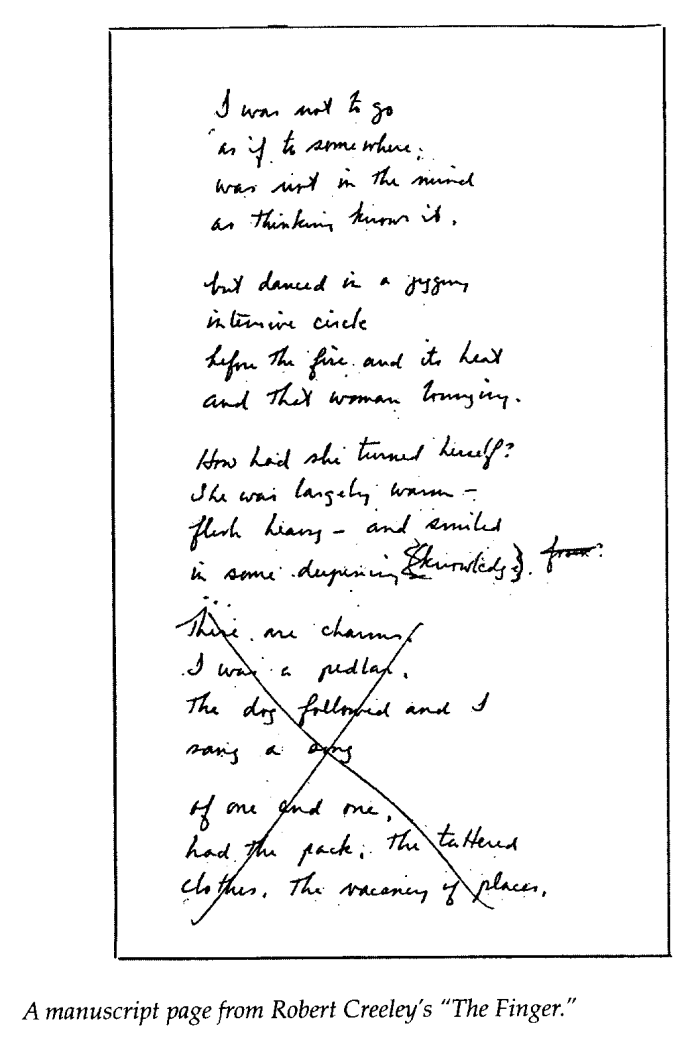 I was not to go
as if to somewhere,
was not in the mind
as thinking knows it,
but danced in a jigging
intensive circle
before the fire and its heat
and that woman lounging.
How had she turned herself?
She was largely warm –
flesh heavy – and smiled
in some deepening {knowledge}. from?
There are charms.
I was a pedlar.
The dog followed and I
sang a song
of one and one,
had the pack, the tattered
clothes, the vacancy of places,
A manuscript page from Robert Creeley's “The Finger.”